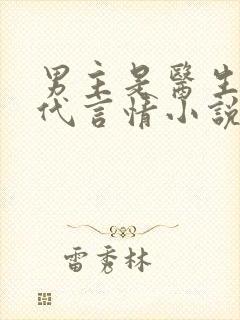 男主是醫生
代言情小說
雷秀林